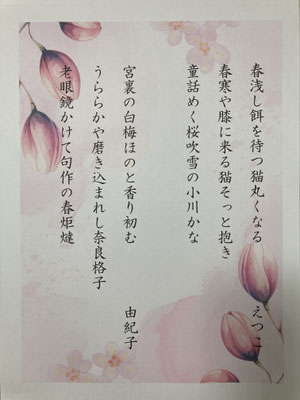 春浅し餌を待つ猫丸くなる　えつこ
春寒や膝に来る猫そっと抱き
童話めく桜吹雪の小川かな
宮裏の白梅ほのと香り初む　由紀子
うららかや磨き込まれし奈良格子
老眼鏡かけて句作の春炬燵